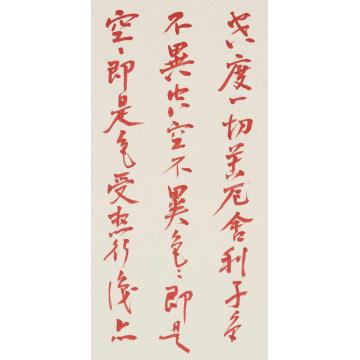 空度一切苦厄舍利子色
不異空空不異色〻即是
空〻即是色受想行識亦